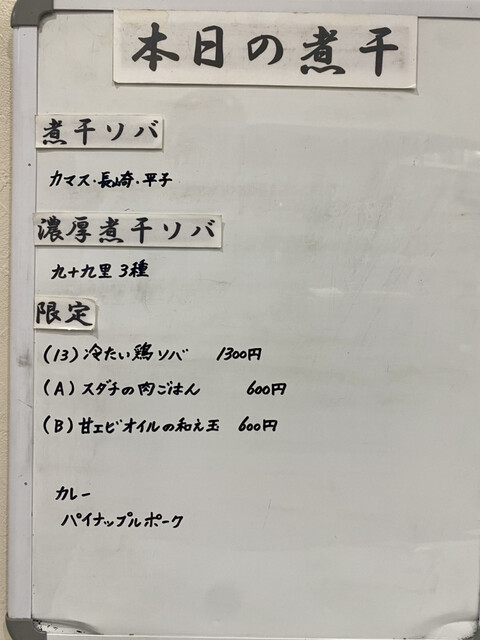 本日の煮干
煮干ソバ
カマス・長崎・平子
濃厚煮干ソバ
九十九里 3種
限定
(13) 冷たい鶏ソバ 1300円
(A) スダチの肉ごはん 600円
(B) 甘エビオイルの和え玉 600円
カレー
パイナップルポーク